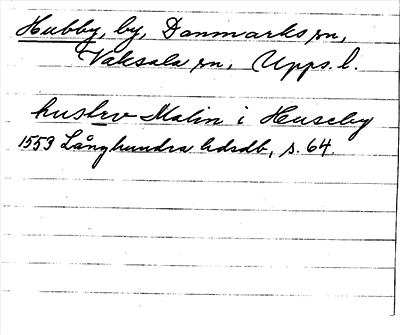 Hubby, by, Danmarks sn,
Vaksala sn, Upps. l.
hustrv Malin i Huseby
1553 Långhundra hdsdb, s. 64.